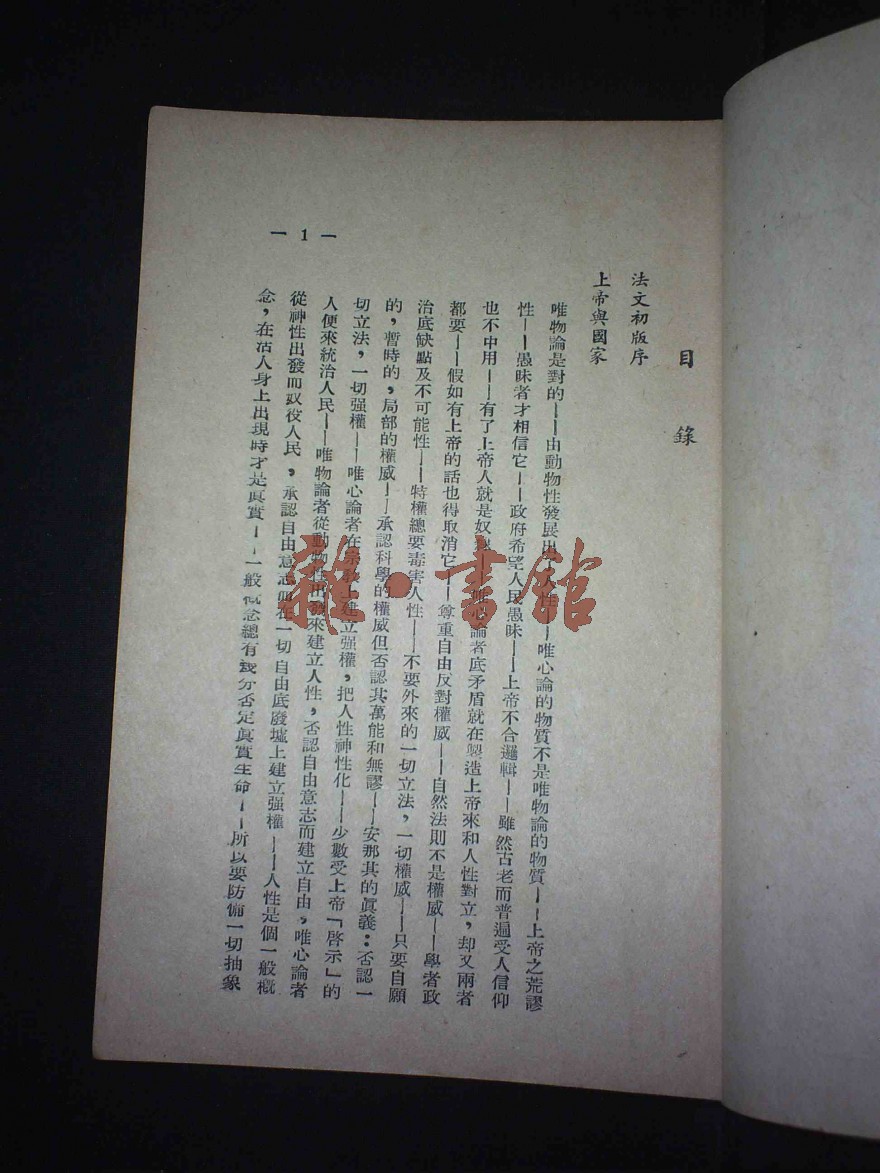 目錄
法文初版序
上帝與國家
唯物論是對的——由動物性發展出人性——唯心論的物質不是唯物論的物質——上帝之荒謬
性——愚昧者才相信它——政府希望人民愚昧——上帝不合邏輯——雖然古老而普遍受人信仰
也不中用——有了上帝人就是奴隸——唯心論者底矛盾就在製造上帝來和人性對立，却又兩者
都要——假如有上帝的話也得取消它——尊重自由反對權威——自然法則不是權威——學者政
治底缺點及不可能性——特權總要毒害人性——不要外來的一切立法，一切權威——只要自願
的，暫時的，局部的權威——承認科學的權威但否認其萬能和無謬——安那其的眞義：否認一
切立法，一切强權——唯心論者在宗教上建立强權，把人性神性化——少數受上帝「啓示」的
人便來統治人民——唯物論者從動物性出發來建立人性，否認自由意志而建立自由，唯心論者
從神性出發而奴役人民，承認自由意志而在一切自由底廢墟上建立强權——人性是個一般概
念，在活人身上出現時才是眞實——一般概念總有幾分否定眞實生命——所以要防備一切抽象
— 1 —
雜·書館